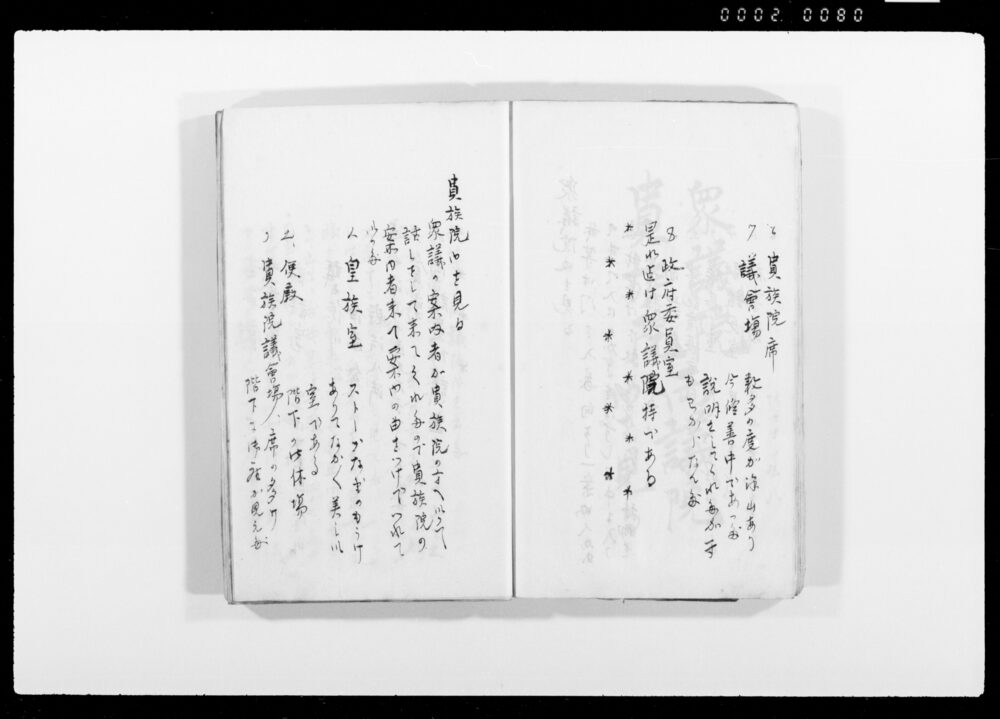 0002 0080
6 貴族院席
7 議會場
数多の席が沢山あり
今修善中であつた
説明をしてくれたが一寸
もわからなんだ
8 政府委員室
是れ迄は衆議院持である
* * * * * * * * *
貴族院内を見る
衆議の案内者が貴族院の方へ行つて
話しをして来てくれたので貴族院の
案内者来て案内の由をつけでつれて
1、皇族室
ストーブなどのもうけ
ありてなかなか美しい
室である
2、便殿
階下の御休場
3 貴族院議會場、席の多け
階下に御座が見えた